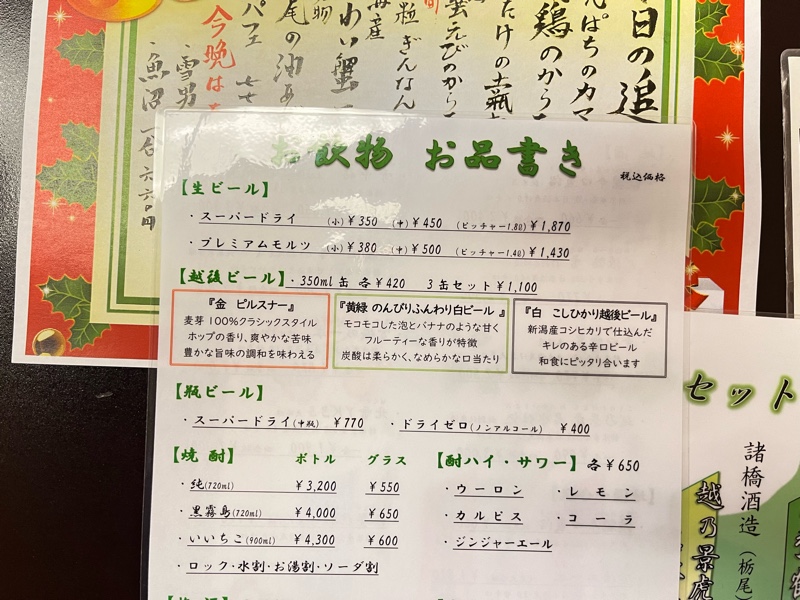 日の追
んぱちのカマ
鶏のから
たけの土瓶
甘えびのから
旬
粒ぎんなん
海産
わい蟹
物
尾の油あ
パフェ
今晩は
・雪男
・魚沼
一合 六六〇円
お飲物 お品書き
税込価格
【生ビール】
・スーパードライ (小)¥350 (中)¥450 (ピッチャー1.8ℓ)¥1,870
・プレミアムモルツ (小)¥380 (中)¥500 (ピッチャー1.4ℓ)¥1,430
【越後ビール】・350ml缶 各¥420 3缶セット¥1,100
『金 ピルスナー』
麦芽100%クラシックスタイル
ホップの香り、爽やかな苦味
豊かな旨味の調和を味わえる
『黄緑 のんびりふんわり白ビール 』
モコモコした泡とバナナのような甘く
フルーティーな香りが特徴
炭酸は柔らかく、なめらかな口当たり
『白 こしひかり越後ビール』
新潟産コシヒカリで仕込んだ
キレのある辛口ビール
和食にピッタリ合います
【瓶ビール】
・スーパードライ(中瓶) ¥770 ・ドライゼロ(ノンアルコール) ¥400
【焼酎】 ボトル グラス
・純(720ml) ¥3,200 ¥550
・黒霧島(720ml) ¥4,000 ¥650
・いいちこ(900ml) ¥4,300 ¥600
・ロック・水割・お湯割・ソーダ割
【酎ハイ・サワー】各¥650
・ウーロン ・レモン
・カルピス ・コーラ
・ジンジャーエール
セット
諸橋酒造(栃尾)
越乃景虎